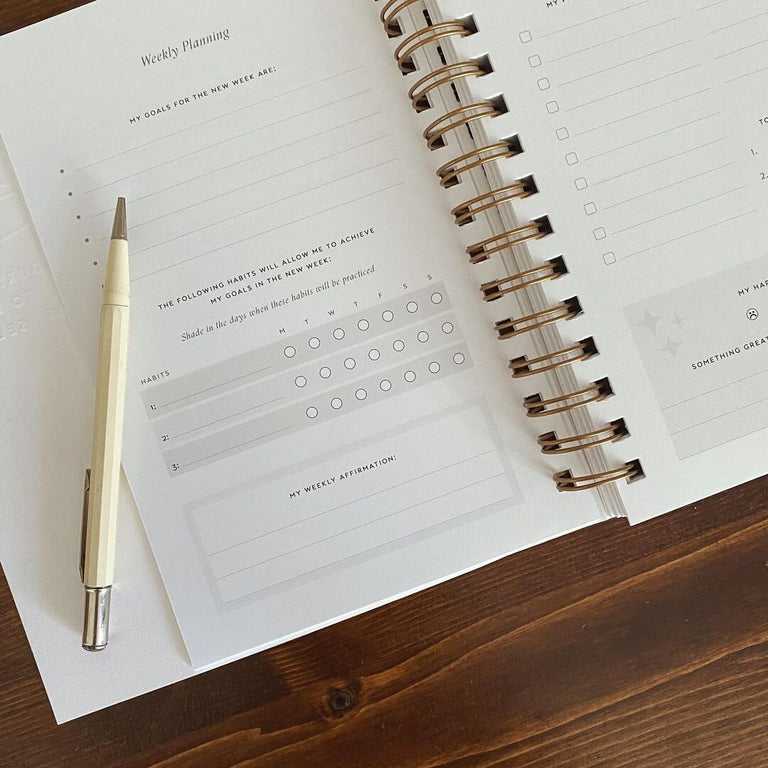 Weekly Planning
MY GOALS FOR THE NEW WEEK ARE:
THE FOLLOWING HABITS WILL ALLOW ME TO ACHIEVE
MY GOALS IN THE NEW WEEK:
Shade in the days when these habits will be practiced.
M T W T F S S
HABITS
1:
2:
3:
MY WEEKLY AFFIRMATION:
MY
1.
2.
MY
SOMETHING